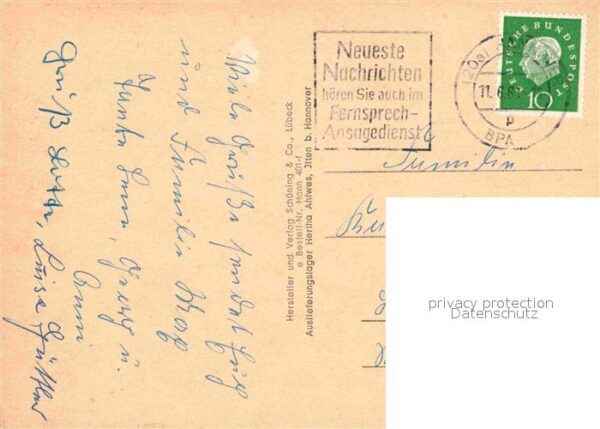 Neueste
Nachrichten
hören Sie auch im
Fernsprech-
Ansagedienst
(20a)
11.6.60
p
BPA
DEUTSCHE BUNDESPOST
10
Familie
privacy protection
Datenschutz
Hersteller und Verlag Schöning & Co., Lübeck
e Bestell-Nr. Hann 401-f
Auslieferungslager Hertha Ahlwes, Ilten b. Hannover
Viele Grüße sendet Euch
und Familie
Tante Anna, Georg u.
Anni
Gruß Lotte, Luise